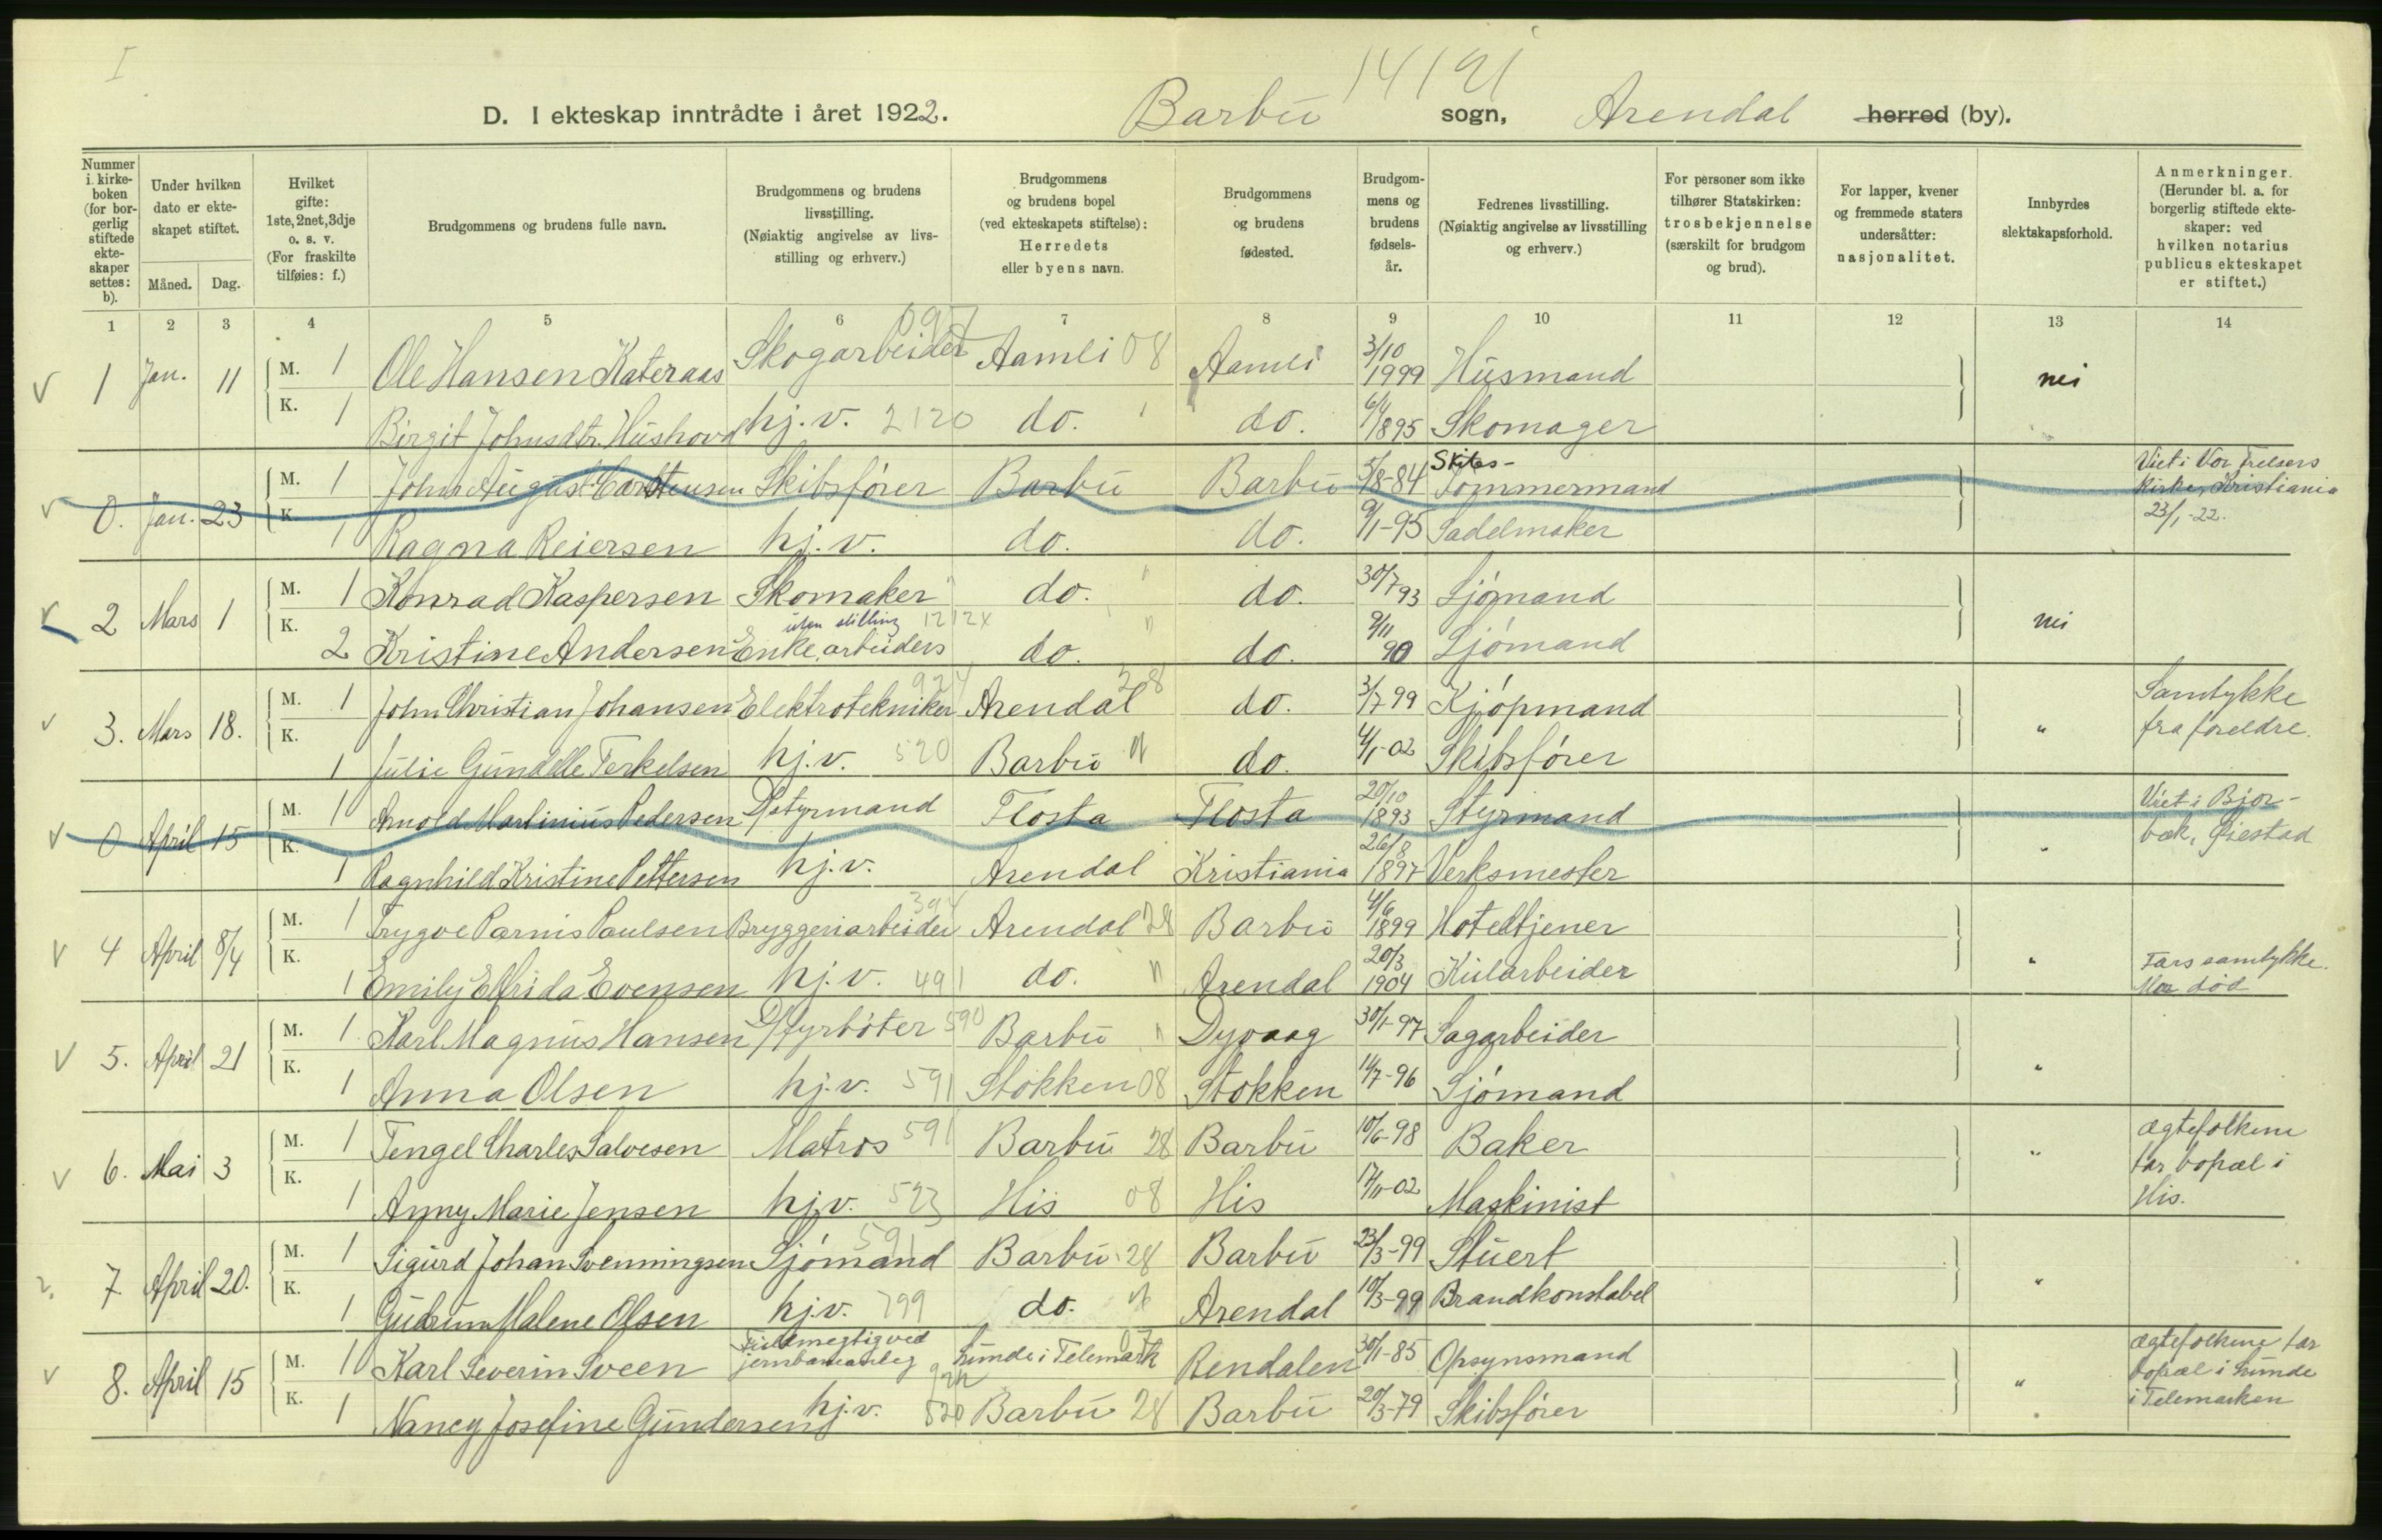 I
14191
D. I ekteskap inntrådte i året 1922. Barbu sogn, Arendal herred (by).
Nummer i kirke-boken (for bor-gerlig stiftede ekte-skaper settes: b).
Under hvilken dato er ekte-skapet stiftet.
Måned. Dag.
Hvilket gifte: 1ste, 2net, 3dje o. s. v. (For fraskilte tilføies: f.)
Brudgommens og brudens fulle navn.
Brudgommens og brudens livsstilling. (Nøiaktig angivelse av livs-stilling og erhverv.)
Brudgommens og brudens bopel (ved ekteskapets stiftelse): Herredets eller byens navn.
Brudgommens og brudens fødested.
Brudgom-mens og brudens fødsels-år.
Fedrenes livsstilling. (Nøiaktig angivelse av livsstilling og erhverv.)
For personer som ikke tilhører Statskirken: trosbekjennelse (særskilt for brudgom og brud).
For lapper, kvener og fremmede staters undersåtter: nasjonalitet.
Innbyrdes slektskapsforhold.
Anmerkninger. (Herunder bl. a. for borgerlig stiftede ekte-skaper: ved hvilken notarius publicus ekteskapet er stiftet.)
1 2 3 4 5 6 7 8 9 10 11 12 13 14
1 Jan. 11 M. 1 Ole Hansen Kateraas Skogarbeider Aamli 08 Aamli 3/10 1999 Husmand nei
K. 1 Birgit Johnsdtr. Hushovd hj.v. 2120 do. do. 6/4 1895 Skomager
0. Jan. 23 M. 1 John August Carstensen Skibsfører Barbu Barbu 5/8-84 Skibs-Tømmermand Viet i Vor Frelsers Kirke, Kristiania 23/1-22.
K. 1 Ragna Reiersen hj.v. do. do. 9/1-95 Sadelmaker
2 Mars 1 M. 1 Konrad Kaspersen Skomaker do. do. 30/7 93 Sjømand nei
K. 2 Kristine Andersen Enke, arbeiders uten stilling do. do. 9/11 90 Sjømand
3. Mars 18. M. 1 John Christian Johansen Elektrotekniker Arendal do. 3/7 99 Kjøpmand " Samtykke fra foreldre.
K. 1 Julie Gundelle Terkelsen hj.v. 520 Barbu " do. 4/1-02 Skibsfører
0 April 15 M. 1 Arnold Martinius Pedersen Styrmand Flosta Flosta 20/10 1893 Styrmand " Viet i Bjor-bæk, Øiestad
K. 1 Ragnhild Kristine Pettersen hj.v. Arendal Kristiania 26/8 1897 Verksmester
4 April 8/4 M. 1 Trygve Parnis Paulsen Bryggeriarbeider Arendal 28 Barbu 4/6 1899 Hoteltjener " Fars samtykke. Mor død
K. 1 Emily Elfrida Evensen hj.v. 491 do. " Arendal 20/3 1904 Kularbeider
5. April 21 M. 1 Karl Magnus Hansen Fyrbøter 590 Barbu " Dyvaag 30/1-97 Sagarbeider "
K. 1 Anna Olsen hj.v. 591 Stokken 08 Stokken 14/7-96 Sjømand
6. Mai 3 M. 1 Tengel Charles Salvesen Matros 591 Barbu 28 Barbu 10/6-98 Baker " Ægtefolkene tar bopæl i His.
K. 1 Anny Marie Jensen hj.v. 523 His 08 His 17/11-02 Maskinist
7. April 20. M. 1 Sigurd Johan Svenningsen Sjømand 591 Barbu 28 Barbu 23/3-99 Stuert "
K. 1 Gudrun Malene Olsen hj.v. 799 do. " Arendal 10/3-99 Brandkonstabel
8. April 15 M. 1 Karl Severin Sveen Fuldmegtig ved jernbaneanleg Lunde i Telemark 07 Rendalen 30/1-85 Opsynsmand " Ægtefolkene tar bopæl i Lunde i Telemarken
K. 1 Nancy Josefine Gundersen hj.v. 520 Barbu 28 Barbu 20/3-79 Skibsfører